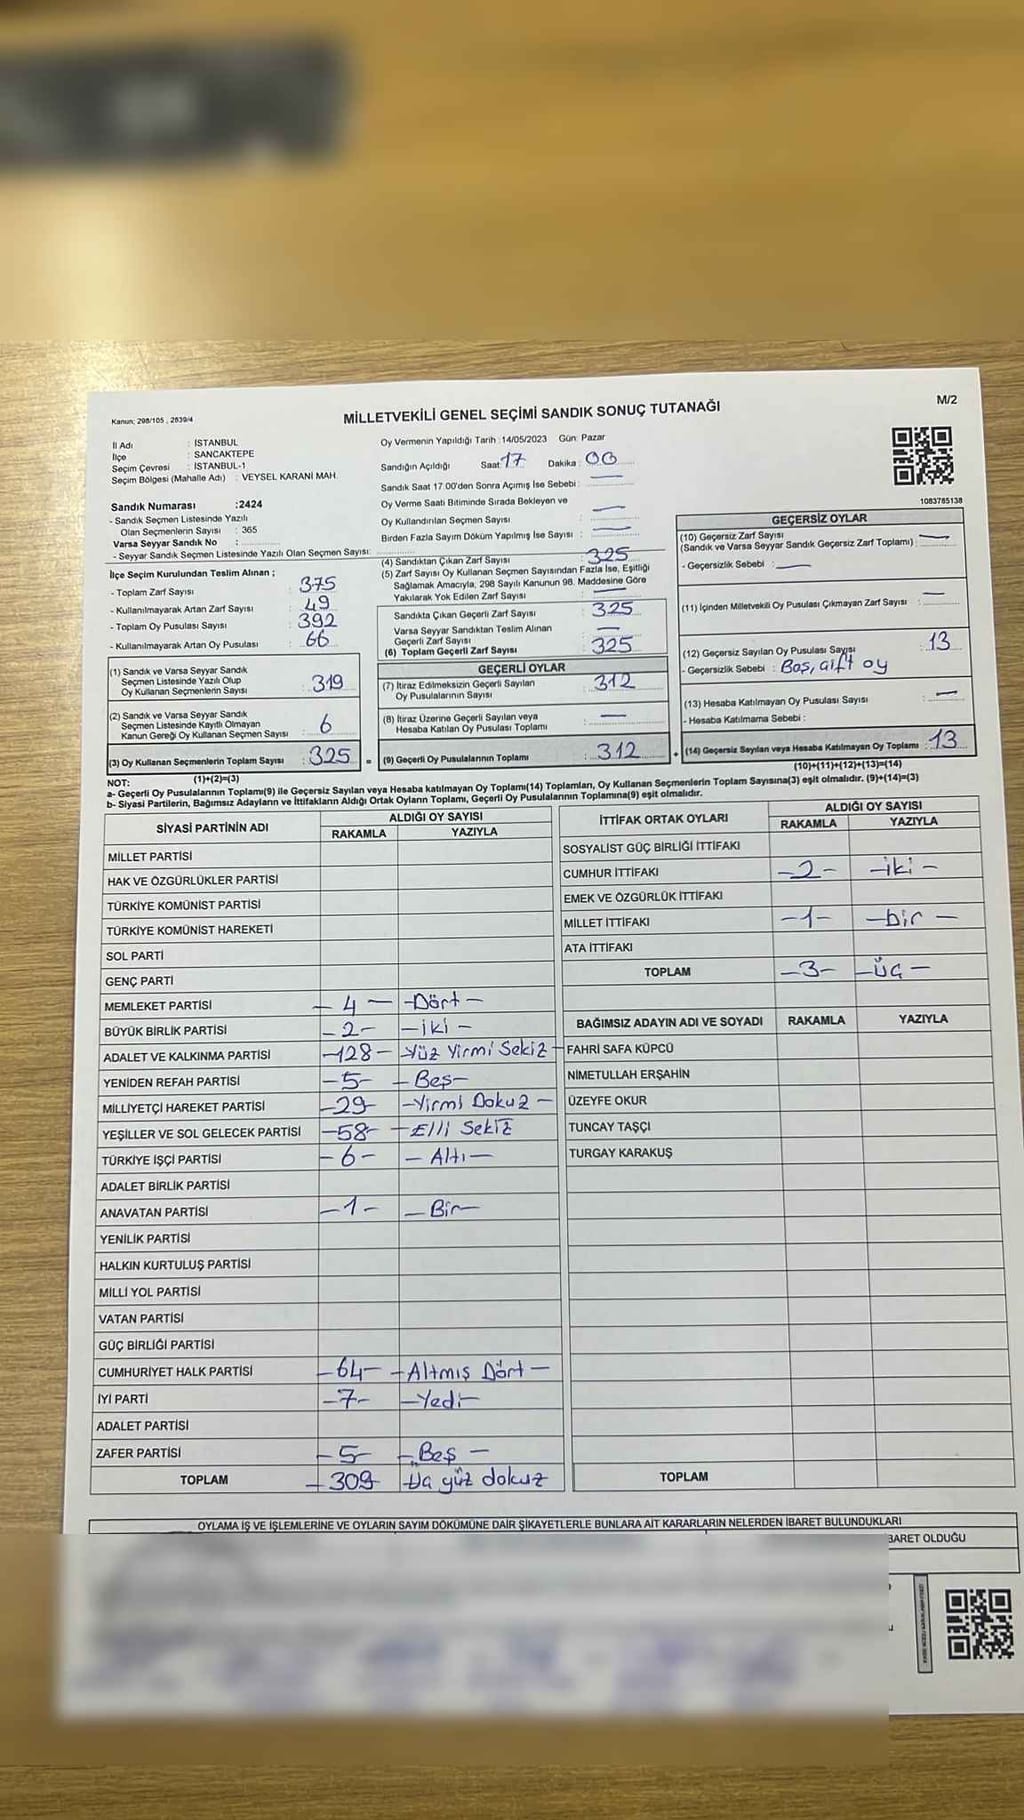 Kanun: 298/105 , 2839/4
MİLLETVEKİLİ GENEL SEÇİMİ SANDIK SONUÇ TUTANAĞI
M/2
İl Adı : İSTANBUL
İlçe : SANCAKTEPE
Seçim Çevresi : İSTANBUL-1
Seçim Bölgesi (Mahalle Adı) : VEYSEL KARANİ MAH.
Oy Vermenin Yapıldığı Tarih :14/05/2023 Gün: Pazar
Sandığın Açıldığı Saat: 17 Dakika : 00
Sandık Saat 17.00'den Sonra Açımış İse Sebebi : —
Oy Verme Saati Bitiminde Sırada Bekleyen ve
Oy Kullandırılan Seçmen Sayısı : —
Birden Fazla Sayım Döküm Yapılmış İse Sayısı : —
1083785138
Sandık Numarası :2424
- Sandık Seçmen Listesinde Yazılı
Olan Seçmenlerin Sayısı : 365
Varsa Seyyar Sandık No :
- Seyyar Sandık Seçmen Listesinde Yazılı Olan Seçmen Sayısı:
İlçe Seçim Kurulundan Teslim Alınan ;
- Toplam Zarf Sayısı : 375
- Kullanılmayarak Artan Zarf Sayısı : 49
- Toplam Oy Pusulası Sayısı : 392
- Kullanılmayarak Artan Oy Pusulası : 66
(1) Sandık ve Varsa Seyyar Sandık
Seçmen Listesinde Yazılı Olup
Oy Kullanan Seçmenlerin Sayısı : 319
(2) Sandık ve Varsa Seyyar Sandık
Seçmen Listesinde Kayıtlı Olmayan
Kanun Gereği Oy Kullanan Seçmen Sayısı : 6
(3) Oy Kullanan Seçmenlerin Toplam Sayısı : 325
(1)+(2)=(3)
(4) Sandıktan Çıkan Zarf Sayısı : 325
(5) Zarf Sayısı Oy Kullanan Seçmen Sayısından Fazla İse, Eşitliği
Sağlamak Amacıyla, 298 Sayılı Kanunun 98. Maddesine Göre
Yakılarak Yok Edilen Zarf Sayısı : —
Sandıkta Çıkan Geçerli Zarf Sayısı : 325
Varsa Seyyar Sandıktan Teslim Alınan
Geçerli Zarf Sayısı : —
(6) Toplam Geçerli Zarf Sayısı : 325
GEÇERLİ OYLAR
(7) İtiraz Edilmeksizin Geçerli Sayılan
Oy Pusulalarının Sayısı : 312
(8) İtiraz Üzerine Geçerli Sayılan veya
Hesaba Katılan Oy Pusulası Toplamı : —
= (9) Geçerli Oy Pusulalarının Toplamı : 312
GEÇERSİZ OYLAR
(10) Geçersiz Zarf Sayısı
(Sandık ve Varsa Seyyar Sandık Geçersiz Zarf Toplamı) : —
- Geçersizlik Sebebi : —
(11) İçinden Milletvekili Oy Pusulası Çıkmayan Zarf Sayısı : —
(12) Geçersiz Sayılan Oy Pusulası Sayısı : 13
- Geçersizlik Sebebi : Boş, çift oy
(13) Hesaba Katılmayan Oy Pusulası Sayısı : —
- Hesaba Katılmama Sebebi :
+ (14) Geçersiz Sayılan veya Hesaba Katılmayan Oy Toplamı : 13
(10)+(11)+(12)+(13)=(14)
NOT:
a- Geçerli Oy Pusulalarının Toplamı(9) ile Geçersiz Sayılan veya Hesaba katılmayan Oy Toplamı(14) Toplamları, Oy Kullanan Seçmenlerin Toplam Sayısına(3) eşit olmalıdır. (9)+(14)=(3)
b- Siyasi Partilerin, Bağımsız Adayların ve İttifakların Aldığı Ortak Oyların Toplamı, Geçerli Oy Pusulalarının Toplamına(9) eşit olmalıdır.
SİYASİ PARTİNİN ADI ALDIĞI OY SAYISI
RAKAMLA YAZIYLA
MİLLET PARTİSİ
HAK VE ÖZGÜRLÜKLER PARTİSİ
TÜRKİYE KOMÜNİST PARTİSİ
TÜRKİYE KOMÜNİST HAREKETİ
SOL PARTİ
GENÇ PARTİ
MEMLEKET PARTİSİ – 4 – – Dört –
BÜYÜK BİRLİK PARTİSİ – 2 – – iki –
ADALET VE KALKINMA PARTİSİ – 128 – – Yüz Yirmi Sekiz –
YENİDEN REFAH PARTİSİ – 5 – – Beş –
MİLLİYETÇİ HAREKET PARTİSİ – 29 – – Yirmi Dokuz –
YEŞİLLER VE SOL GELECEK PARTİSİ – 58 – – Elli Sekiz
TÜRKİYE İŞÇİ PARTİSİ – 6 – – Altı –
ADALET BİRLİK PARTİSİ
ANAVATAN PARTİSİ – 1 – – Bir –
YENİLİK PARTİSİ
HALKIN KURTULUŞ PARTİSİ
MİLLİ YOL PARTİSİ
VATAN PARTİSİ
GÜÇ BİRLİĞİ PARTİSİ
CUMHURİYET HALK PARTİSİ – 64 – – Altmış Dört –
İYİ PARTİ – 7 – – Yedi –
ADALET PARTİSİ
ZAFER PARTİSİ – 5 – – Beş –
TOPLAM – 309 yüz dokuz
İTTİFAK ORTAK OYLARI ALDIĞI OY SAYISI
RAKAMLA YAZIYLA
SOSYALİST GÜÇ BİRLİĞİ İTTİFAKI
CUMHUR İTTİFAKI – 2 – – iki –
EMEK VE ÖZGÜRLÜK İTTİFAKI
MİLLET İTTİFAKI – 1 – – bir –
ATA İTTİFAKI
TOPLAM – 3 – – Üç –
BAĞIMSIZ ADAYIN ADI VE SOYADI RAKAMLA YAZIYLA
FAHRİ SAFA KÜPCÜ
NİMETULLAH ERŞAHİN
ÜZEYFE OKUR
TUNCAY TAŞÇI
TURGAY KARAKUŞ
TOPLAM
OYLAMA İŞ VE İŞLEMLERİNE VE OYLARIN SAYIM DÖKÜMÜNE DAİR ŞİKAYETLERLE BUNLARA AİT KARARLARIN NELERDEN İBARET BULUNDUKLARI
BARET OLDUĞU